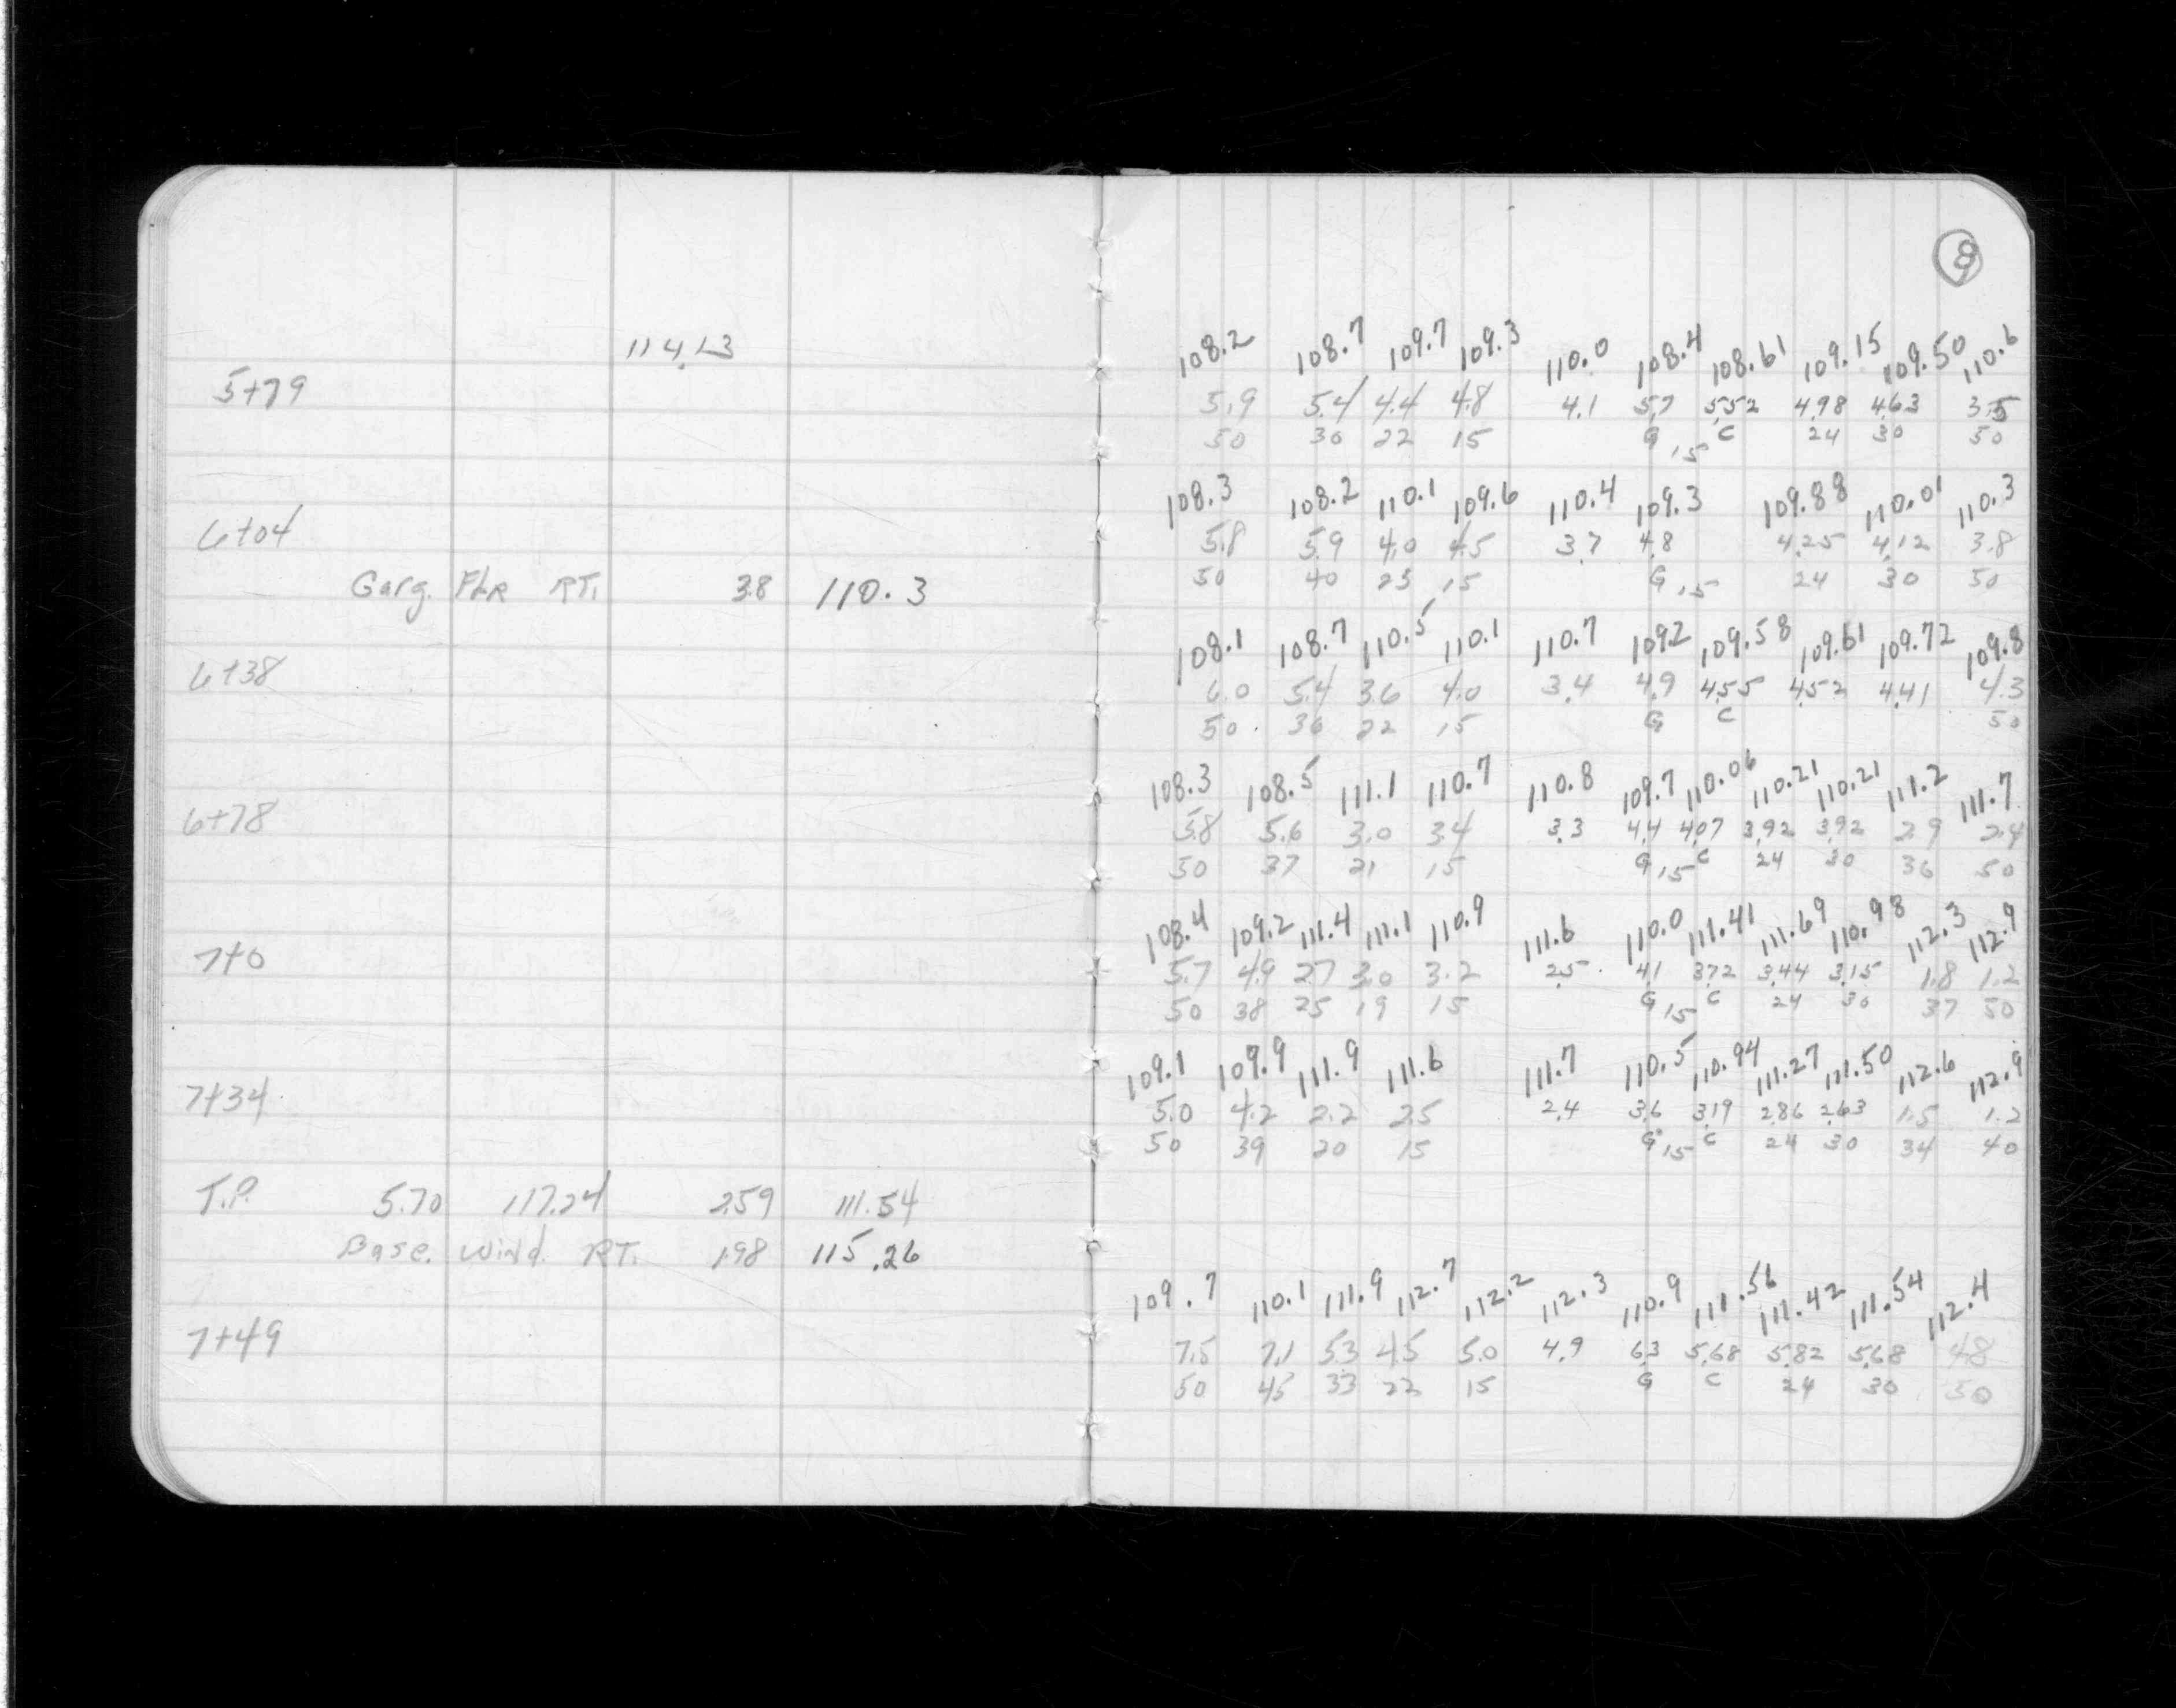 8
114.13
108.2 108.7 109.7 109.3 110.0 108.4 108.61 109.15 109.50 110.6
5+79 5.9 5.4 4.4 4.8 4.1 5.7 5.52 4.98 4.63 3.5
50 30 22 15 G 15 C 24 30 50
108.3 108.2 110.1 109.6 110.4 109.3 109.88 110.01 110.3
6+04 5.8 5.9 4.0 4.5 3.7 4.8 4.25 4.12 3.8
Garg. Flr RT. 3.8 110.3 50 40 25 15 G 15 24 30 50
108.1 108.7 110.5 110.1 110.7 109.2 109.58 109.61 109.72 109.8
6+38 6.0 5.4 3.6 4.0 3.4 4.9 4.55 4.52 4.41 4.3
50 36 22 15 G C 50
108.3 108.5 111.1 110.7 110.8 109.7 110.06 110.21 110.21 111.2 111.7
6+78 5.8 5.6 3.0 3.4 3.3 4.4 4.07 3.92 3.92 2.9 2.4
50 37 21 15 G 15 C 24 30 36 50
108.4 109.2 111.4 111.1 110.9 111.6 110.0 111.41 111.69 110.98 112.3 112.9
7+0 5.7 4.9 2.7 3.0 3.2 2.5 4.1 3.72 3.44 3.15 1.8 1.2
50 38 25 19 15 G 15 C 24 30 37 50
109.1 109.9 111.9 111.6 111.7 110.5 110.94 111.27 111.50 112.6 112.9
7+34 5.0 4.2 2.2 2.5 2.4 3.6 3.19 2.86 2.63 1.5 1.2
50 39 20 15 G 15 C 24 30 34 40
T.P. 5.70 117.24 2.59 111.54
Base. Wind. RT. 1.98 115.26
109.7 110.1 111.9 112.7 112.2 112.3 110.9 111.56 111.42 111.54 112.4
7+49 7.5 7.1 5.3 4.5 5.0 4.9 6.3 5.68 5.82 5.68 4.8
50 45 33 22 15 G C 24 30 50